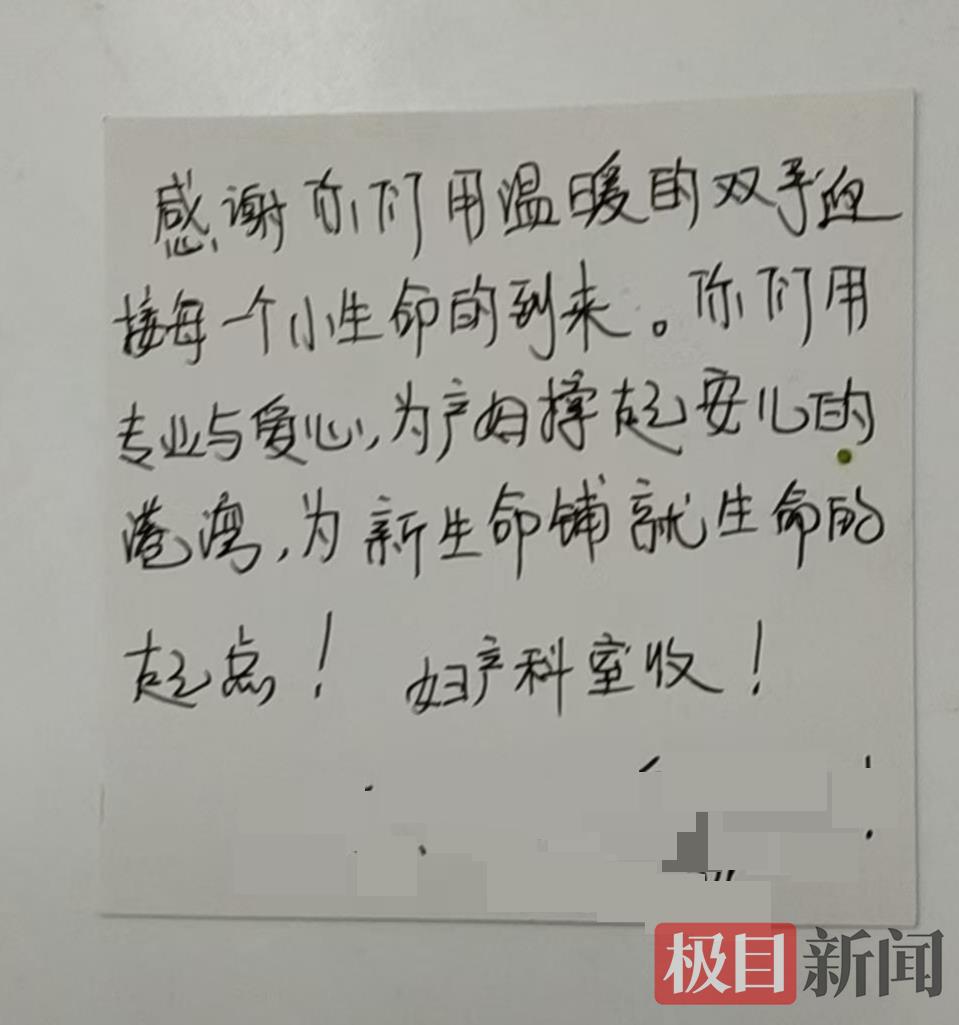 感谢你们用温暖的双手迎
接每一个小生命的到来。你们用
专业与爱心,为产妇撑起安心的
港湾,为新生命铺就生命的
起点! 妇产科室收!
极目新闻